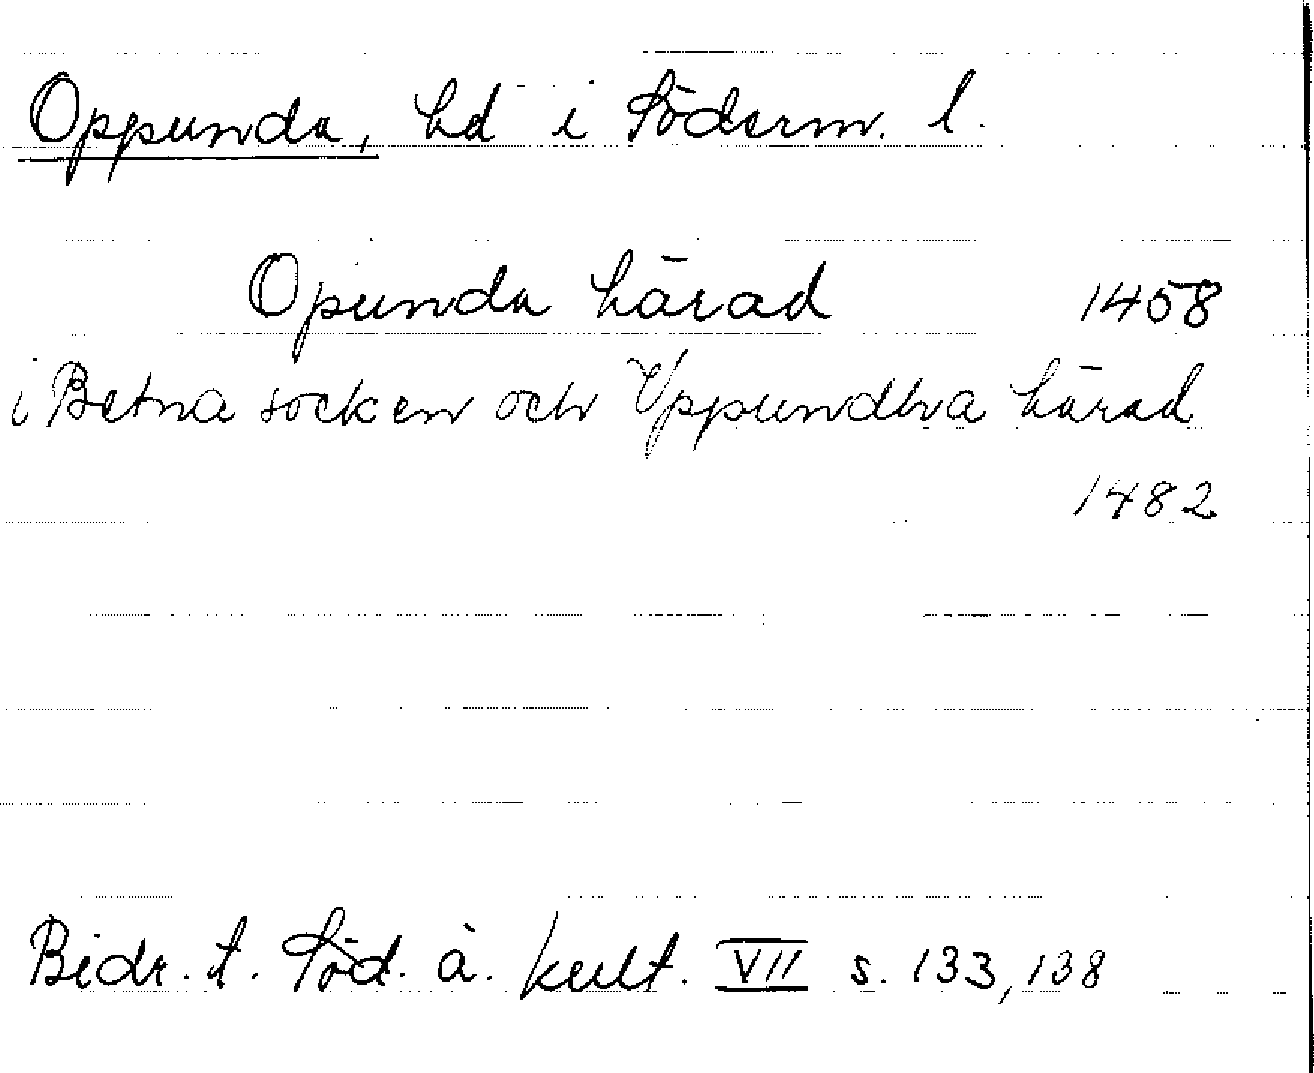 Oppunda, hd i Söderm. l.
Opunda härad 1458
i Betna socken och Vppundha härad
1482
Bidr. t. Söd. ä. kult. VII s. 133, 138